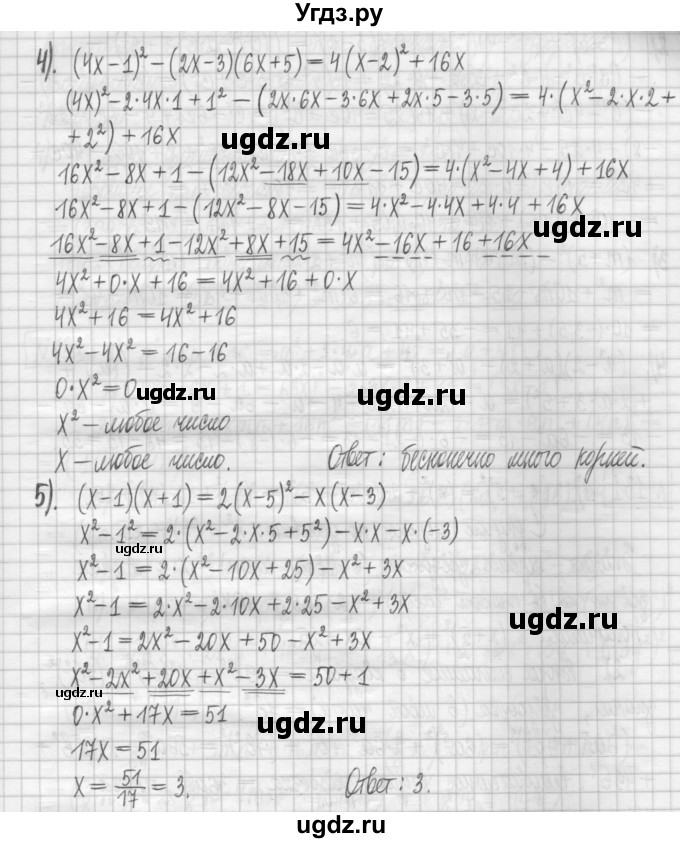 Угдз.ру
4). (4x-1)²-(2x-3)(6x+5)=4(x-2)²+16x
(4x)²-2·4x·1+1²-(2x·6x-3·6x+2x·5-3·5)=4·(x²-2·x·2+
+2²)+16x
ugdz.ru
16x²-8x+1-(12x²-18x+10x-15)=4·(x²-4x+4)+16x
16x²-8x+1-(12x²-8x-15)=4·x²-4·4x+4·4+16x
ugdz.ru
16x²-8x+1-12x²+8x+15=4x²-16x+16+16x
4x²+0·x+16=4x²+16+0·x
4x²+16=4x²+16
4x²-4x²=16-16
0·x²=0
ugdz.ru
ugdz.ru
x²-любое число
x-любое число. Ответ: бесконечно много корней.
5). (x-1)(x+1)=2(x-5)²-x(x-3)
x²-1²=2·(x²-2·x·5+5²)-x·x-x·(-3)
ugdz.ru
x²-1=2·(x²-10x+25)-x²+3x
x²-1=2·x²-2·10x+2·25-x²+3x
ugdz.ru
x²-1=2x²-20x+50-x²+3x
x²-2x²+20x+x²-3x=50+1
ugdz.ru
0·x²+17x=51
ugdz.ru
17x=51
x=51/17=3. Ответ: 3.
ugdz.ru